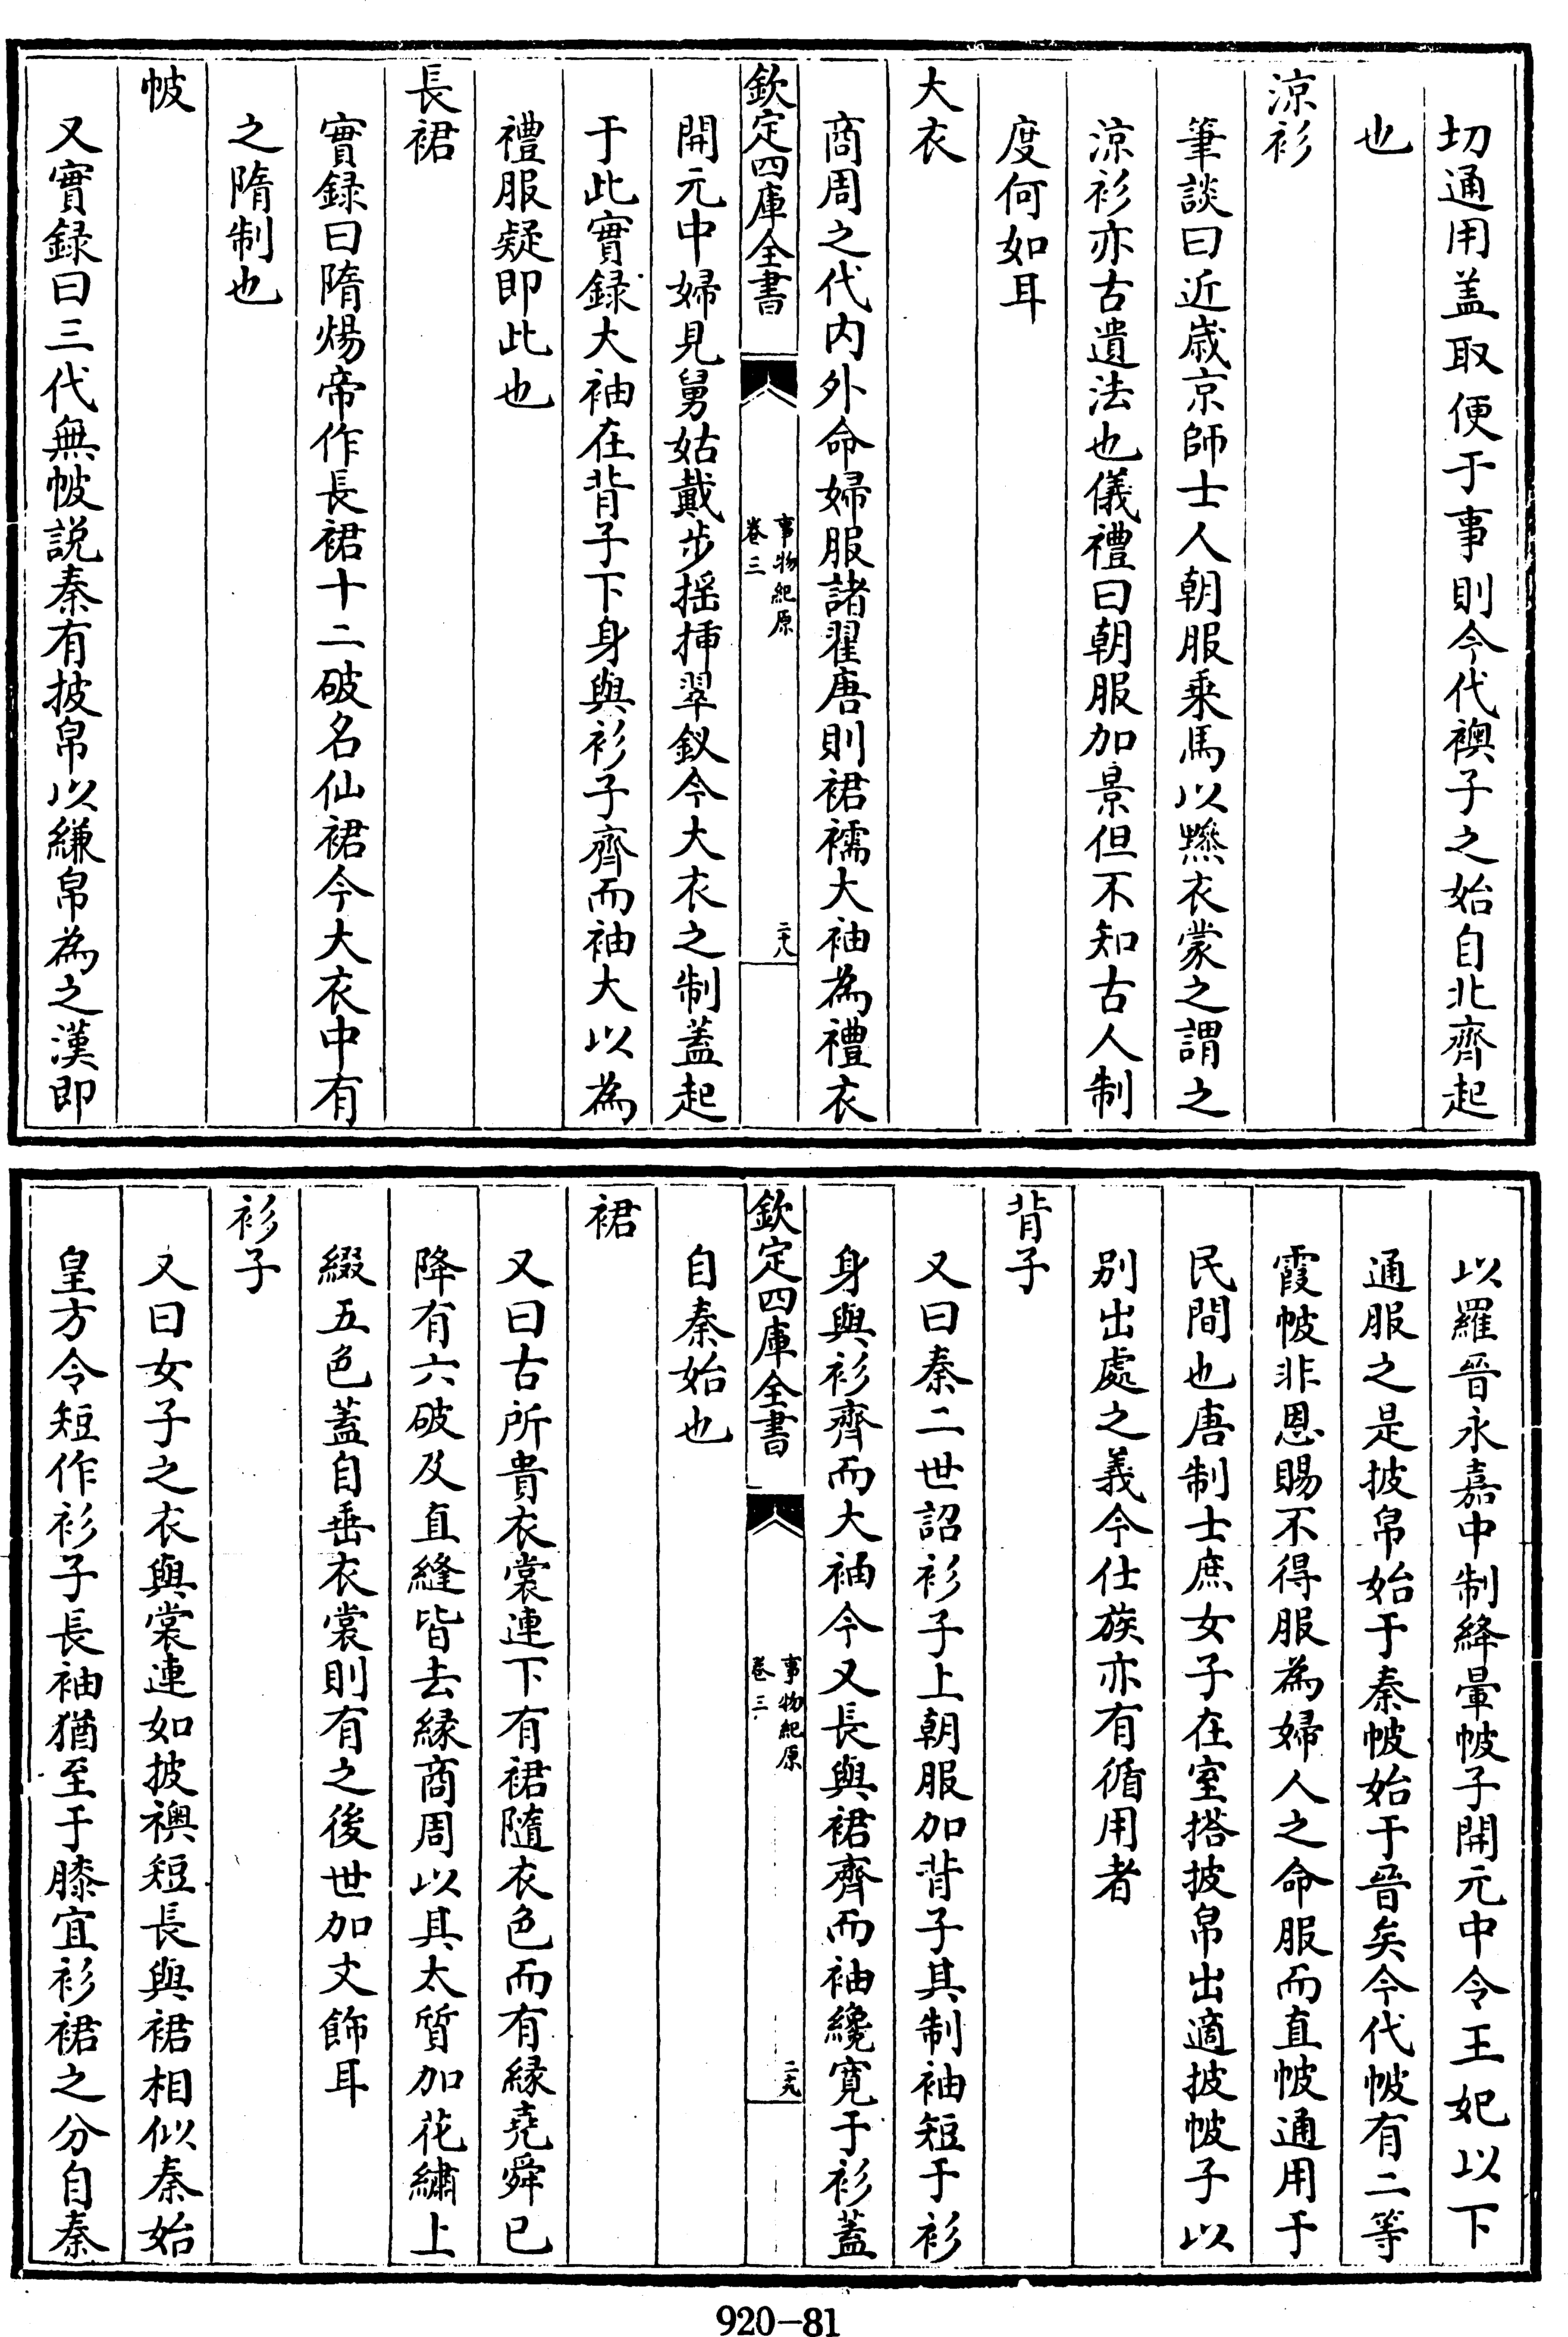 切通用盖取便于事則今代襖子之始自北齊起
也
涼衫
筆談曰近歲京師士人朝服乘馬以黲衣蒙之謂之
涼衫亦古遺法也儀禮曰朝服加景但不知古人制
度何如耳
大衣
商周之代内外命婦服諸翟唐則裙襦大袖為禮衣
欽定四庫全書
事物紀原
卷三
二十八
開元中婦見舅姑戴步揺挿翠釵今大衣之制蓋起
于此實録大袖在背子下身與衫子齊而袖大以為
禮服疑即此也
長裙
實録曰隋煬帝作長裙十二破名仙裙今大衣中有
之隋制也
帔
又實録曰三代無帔説秦有披帛以縑帛為之漢即
以羅晉永嘉中制絳暈帔子開元中令王妃以下
通服之是披帛始于秦帔始于晉矣今代帔有二等
霞帔非恩賜不得服為婦人之命服而直帔通用于
民間也唐制士庶女子在室搭披帛出適披帔子以
别出處之義今仕族亦有循用者
背子
又曰秦二世詔衫子上朝服加背子其制袖短于衫
身與衫齊而大袖今又長與裙齊而袖纔寛于衫蓋
欽定四庫全書
事物紀原
卷三
二十九
自秦始也
裙
又曰古所貴衣裳連下有裙隨衣色而有緣堯舜已
降有六破及直縫皆去緣商周以其太質加花繡上
綴五色蓋自垂衣裳則有之後世加文飾耳
衫子
又曰女子之衣與裳連如披襖短長與裙相似秦始
皇方令短作衫子長袖猶至于膝宜衫裙之分自秦
920-81